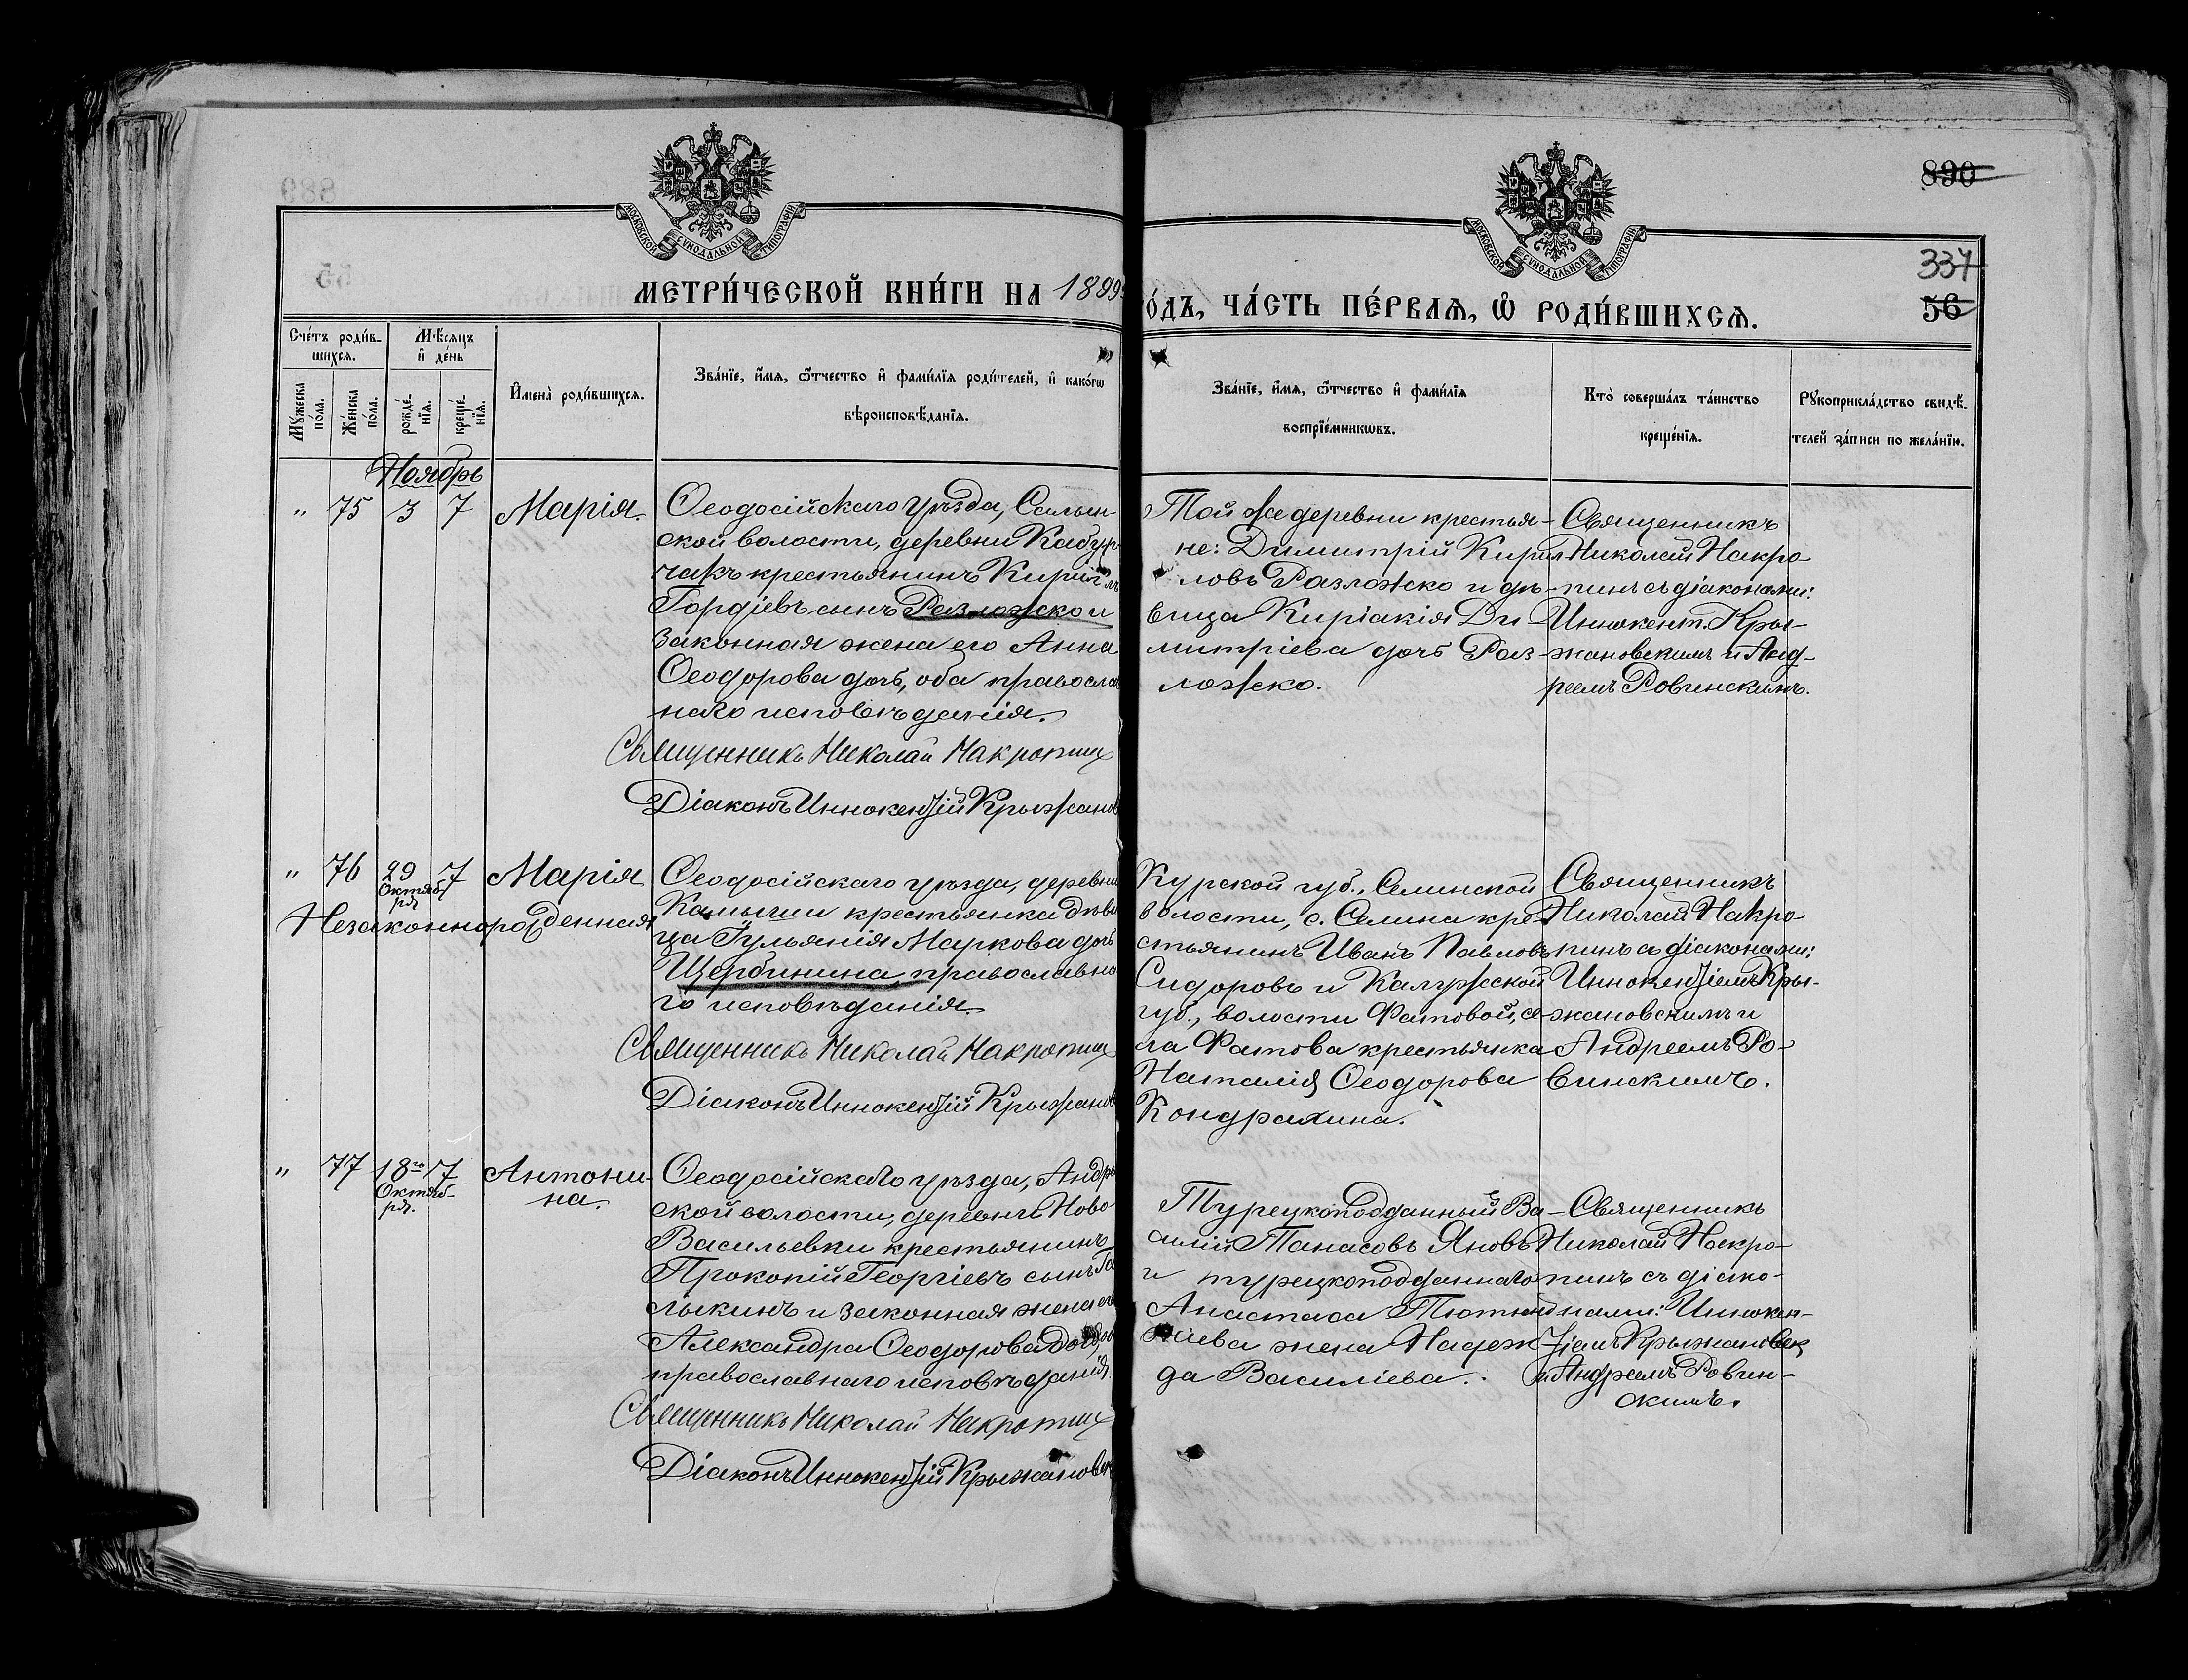 890
337
56
МОСКОВСКОЙ СѴНОДАЛЬНОЙ ТИПОГРАФІИ
МОСКОВСКОЙ СѴНОДАЛЬНОЙ ТИПОГРАФІИ
МЕТРИ́ЧЕСКОЙ КНИ́ГИ НА 1899
О́ДЪ, ЧА́СТЬ ПЕ́РВАѦ, Ѡ҆ РОДИ́ВШИХСѦ.
Сче́тъ роди́в-
шихсѧ.
Мѣ́сяцъ
и҆ де́нь
Мꙋ́жеска
по́ла.
Же́нска
по́ла.
рожде́-
нїѧ.
креще́-
нїѧ.
И҆мена̀ роди́вшихсѧ.
Зва́нїе, и҆́мѧ, ѻ҆́тчество и҆ фами́лїѧ роди́телей, и҆ како́гѡ
вѣроисповѣ́данїѧ.
Зва́нїе, и҆́мѧ, ѻ҆́тчество и҆ фами́лїѧ
воспрїе́мникѡвъ.
Кто̀ соверша́лъ та́инство
креще́нїѧ.
Рꙋкоприкла́дство свидѣ́-
телей за́писи по жела́нїю.
Ноябрь
" 75 3 7 Марія.
Ѳеодосійскаго уѣзда, Салын-
ской волости, деревни
чакъ крестьянинъ Кириллъ
Гордіевъ сынъ Разложско и
законная жена его Анна
Ѳеодорова дочь, оба православ
наго исповѣданія.
Священникъ Николай Накропин
Діаконъ Иннокентій Крыжанов
Той же деревни крестья-
не: Димитрій Кирил
ловъ Разложско и дѣ-
вица Киріакія Ди
митріева дочь Раз-
ложско.
Священникъ
Николай Накро
пинъ съ діаконами:
Иннокент. Кры-
жановскимъ и Анд-
реемъ Ровинскимъ.
" 76 29 7 Марія
Октяб
ря
Незаконнорожденная
Ѳеодосійскаго уѣзда, деревни
крестьянка дѣви
ца Іульянія Маркова дочь
Щербинина, православна
го исповѣданія.
Священникъ Николай Накропин
Діаконъ Иннокентій Крыжанов
Курской губ., Селинской
волости, с. Селина кре-
стьянинъ Иванъ Павловъ
Сидоровъ и Калужской
губ., волости Фатовой, се
ла Фатова крестьянка
Наталія Ѳеодорова
Кондрахина.
Священникъ
Николай Накро-
пинъ съ діаконами:
Иннокентіемъ Кры-
жановскимъ и
Андреемъ Ро-
винскимъ.
" 77 18го 7 Антони-
Октяб-
ря.
на.
Ѳеодосійскаго уѣзда, Андре
ской волости, деревни Ново-
Васильевки крестьянинъ
Прокопій Георгіевъ сынъ Га
лыкинъ и законная жена его
Александра Ѳеодорова дочь, оба
православнаго исповѣданія.
Священникъ Николай Накропин
Діаконъ Иннокентій Крыжановск
Турецкоподданный Ва-
силій Танасовъ Яновъ
и турецкоподданнаго
Анастаса
жена Надеж
да Василіева.
Священникъ
Николай Накро-
пинъ съ діако-
нами: Иннокен-
тіемъ Крыжановск
и Андреемъ Ровин-
скимъ.